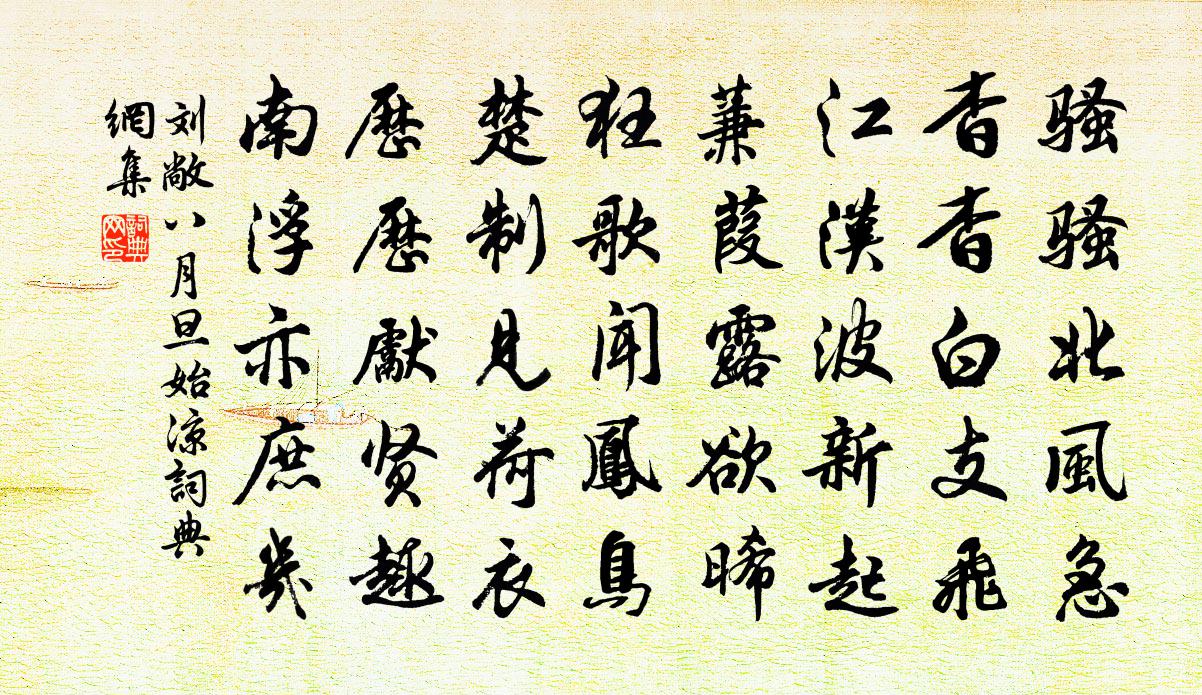 骚骚北風急
杳杳白支飛
江漢波新起
蒹葭露欲晞
狂歌聞鳳鳥
楚制見荷衣
歷歷獻贤趣
南浮亦庶幾
刘敞八月旦始凉詞典
網集
詞典
网印